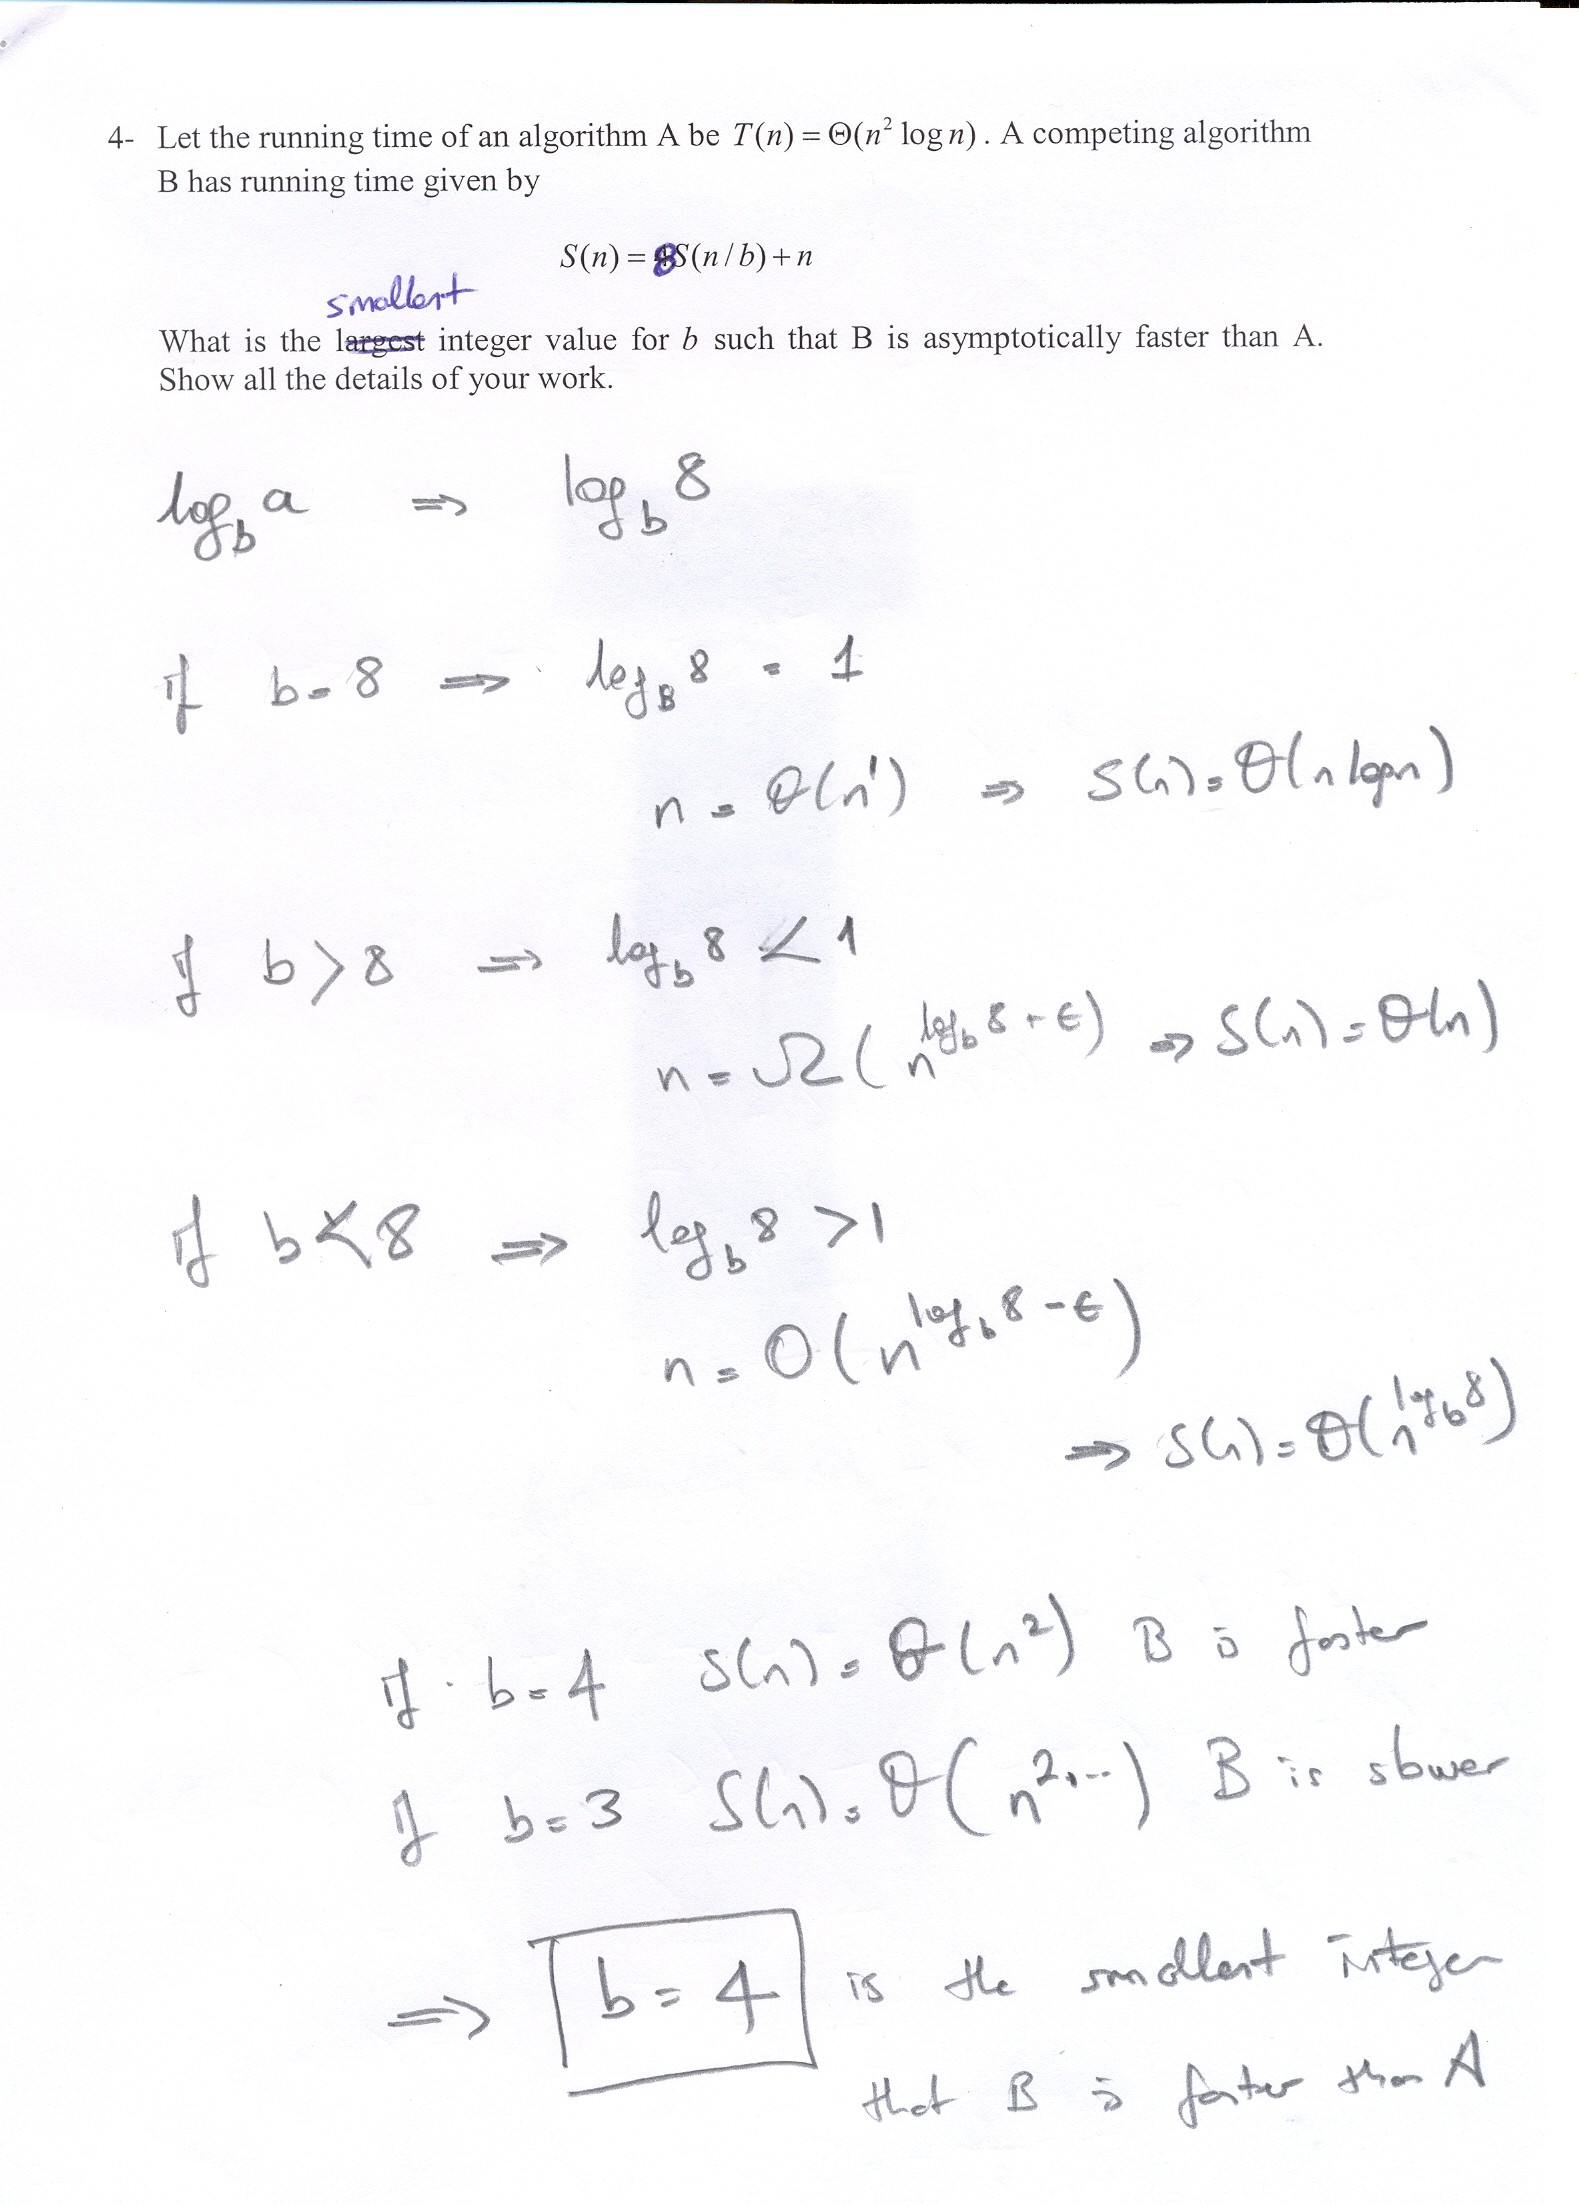 4- Let the running time of an algorithm A be T(n) = Θ(n² log n). A competing algorithm
B has running time given by
S(n) = 8S(n/b) + n
smallest
What is the largest integer value for b such that B is asymptotically faster than A.
Show all the details of your work.
log_b a ⇒ log_b 8
if b = 8 ⇒ log_8 8 = 1
n = Θ(n¹) ⇒ S(n) = Θ(n log n)
if b > 8 ⇒ log_b 8 < 1
n = Ω(n^(log_b 8 + ε)) ⇒ S(n) = Θ(n)
if b < 8 ⇒ log_b 8 > 1
n = O(n^(log_b 8 - ε))
⇒ S(n) = Θ(n^(log_b 8))
if b = 4 S(n) = Θ(n²) B is faster
if b = 3 S(n) = Θ(n^2,...) B is slower
⇒ b = 4 is the smallest integer
that B is faster than A